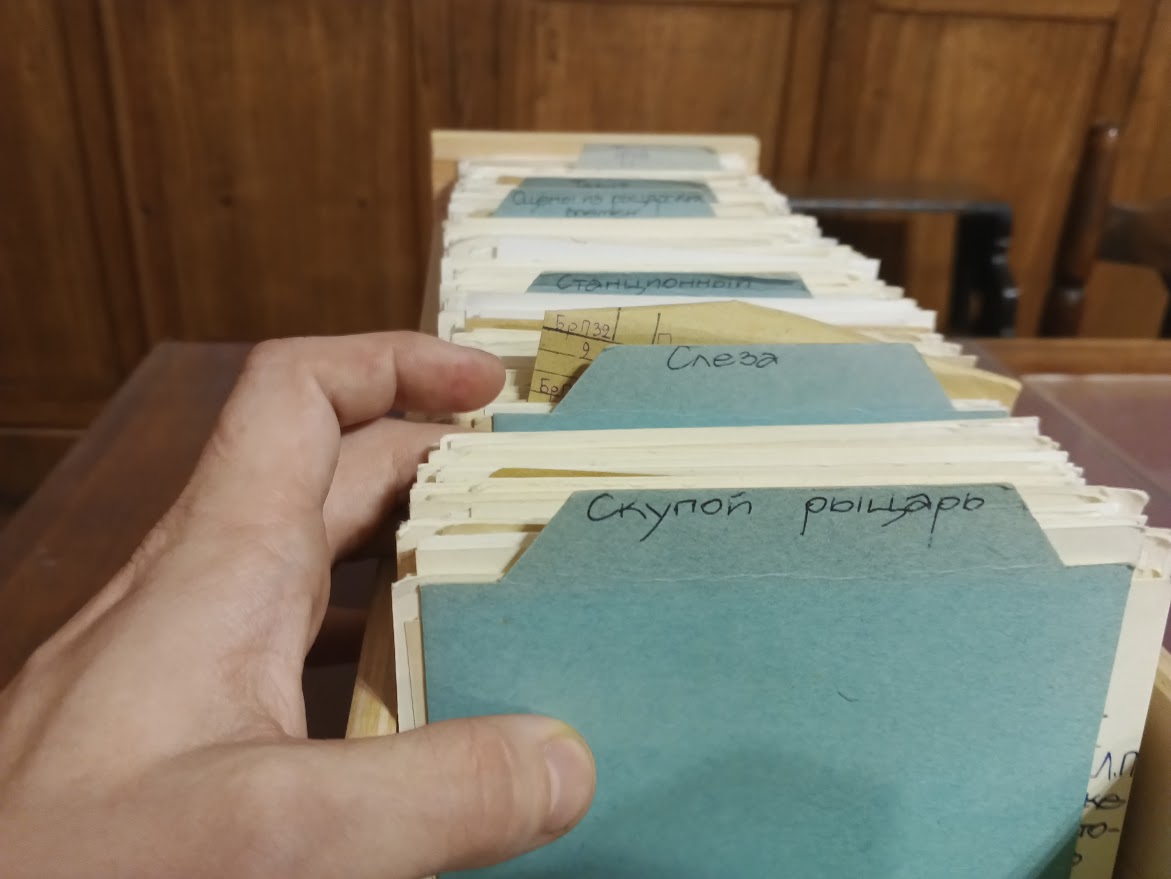 Сцены из рыцарских
времен
Станционный
БрП32
П
9
Слеза
Скупой рыцарь
Л.П
же
то-